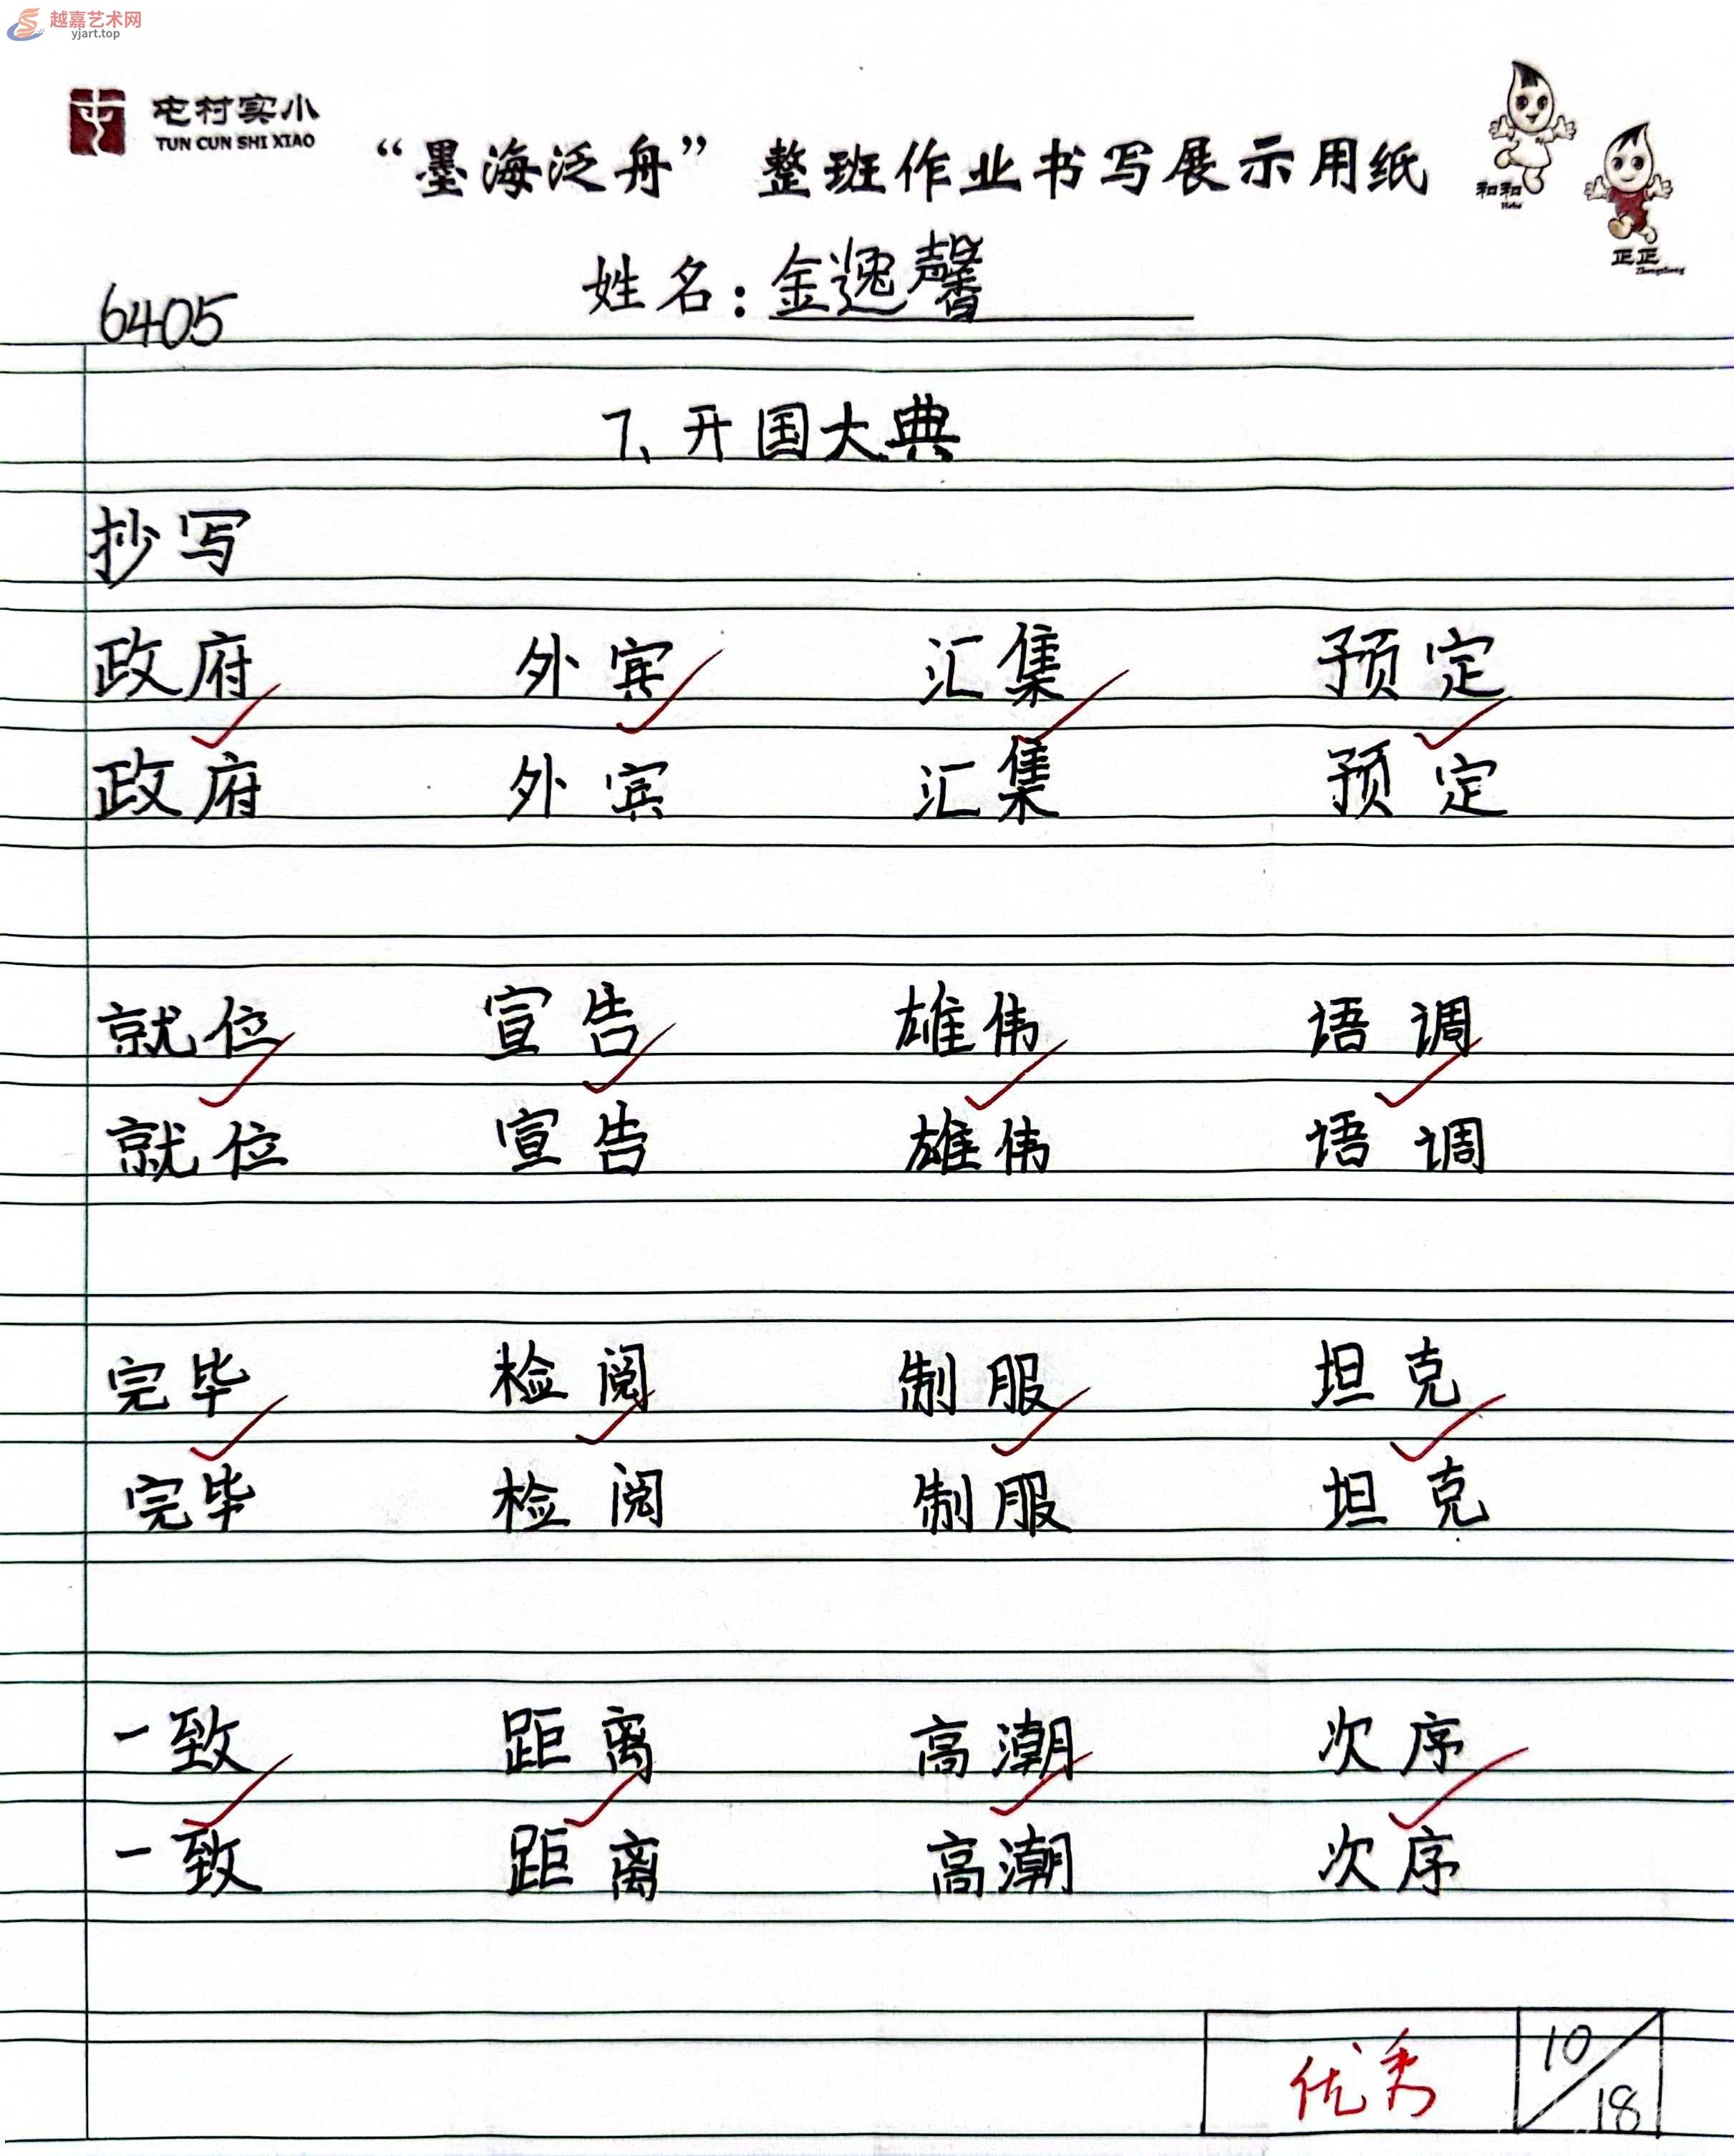 越嘉艺术网
yjart.top
屯村实小
TUN CUN SHI XIAO
“墨海泛舟”整班作业书写展示用纸
和和
Hehe
正正
Zhengzheng
姓名：金逸馨
6405
7、开国大典
抄写
政府 外宾 汇集 预定
政府 外宾 汇集 预定
就位 宣告 雄伟 语调
就位 宣告 雄伟 语调
完毕 检阅 制服 坦克
完毕 检阅 制服 坦克
一致 距离 高潮 次序
一致 距离 高潮 次序
优秀 10/18